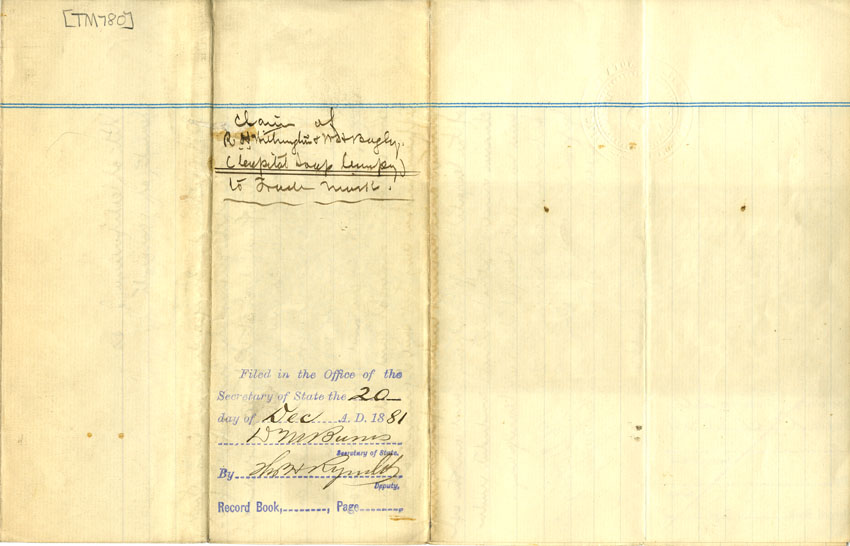 [TM780]
Claim of
R H Withington & W H Bagly.
(Capital Soap Compy)
to Trade Mark.
Filed in the Office of the
Secretary of State the 20
day of Dec A. D. 1881
D M Burns
Secretary of State.
By Thos H Reynolds
Deputy.
Record Book, , Page